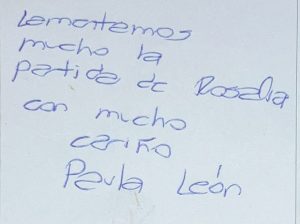 Lamentamos
mucho la
partida de Rosalia
con mucho
cariño
Paula León